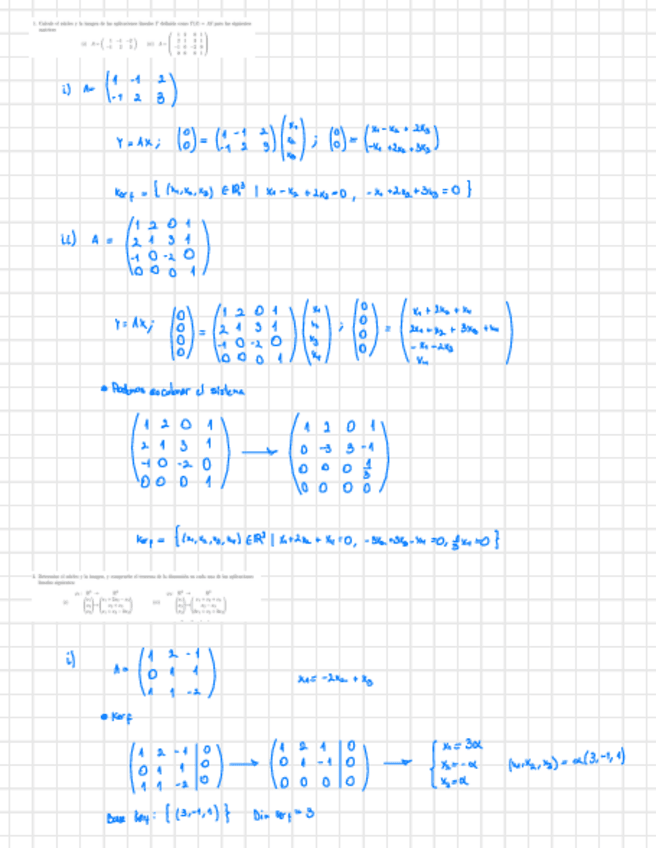 1. Calcule el núcleo y la imagen de las aplicaciones lineales T definidas como T(X) = AX para las siguientes
matrices
i) A = ( 1 -1 2
-1 2 3 )
Y = AX ; (0 0) = (1 -1 2 -1 2 3) (x₁ x₂ x₃) ; (0 0) = (x₁ - x₂ + 2x₃ -x₁ + 2x₂ + 3x₃)
Ker f = { (x₁, x₂, x₃) ∈ ℝ³ | x₁ - x₂ + 2x₃ = 0 , -x₁ + 2x₂ + 3x₃ = 0 }
ii) A = ( 1 2 0 1
2 1 3 1
-1 0 -2 0
0 0 0 1 )
Y = AX ; (0 0 0 0) = (1 2 0 1 2 1 3 1 -1 0 -2 0 0 0 0 1) (x₁ x₂ x₃ x₄) ; (0 0 0 0) = (x₁ + 2x₂ + x₄ 2x₁ + x₂ + 3x₃ + x₄ -x₁ - 2x₃ x₄)
• Podemos escalonar el sistema
1 2 0 1 1 2 0 1
2 1 3 1 0 -3 3 -1
-1 0 -2 0 → 0 0 0 1/3
0 0 0 1 0 0 0 0
Ker f = { (x₁, x₂, x₃, x₄) ∈ ℝ³ | x₁ + 2x₂ + x₄ = 0, -3x₂ + 3x₃ - x₄ = 0, 1/3 x₄ = 0 }
2. Determine el núcleo y la imagen, y compruebe el teorema de la dimensión en cada una de las aplicaciones
lineales siguientes:
i) A = ( 1 2 -1
0 1 1
1 1 -2 )
x₁ = -2x₂ + x₃
• Ker f
1 2 -1 | 0 1 2 1 | 0 x₁ = 3α
0 1 1 | 0 → 0 1 -1 | 0 → x₂ = -α (x₁, x₂, x₃) = α(3, -1, 1)
1 1 -2 | 0 0 0 0 | 0 x₃ = α
Base Ker f : { (3, -1, 1) } Dim Ker f = 3